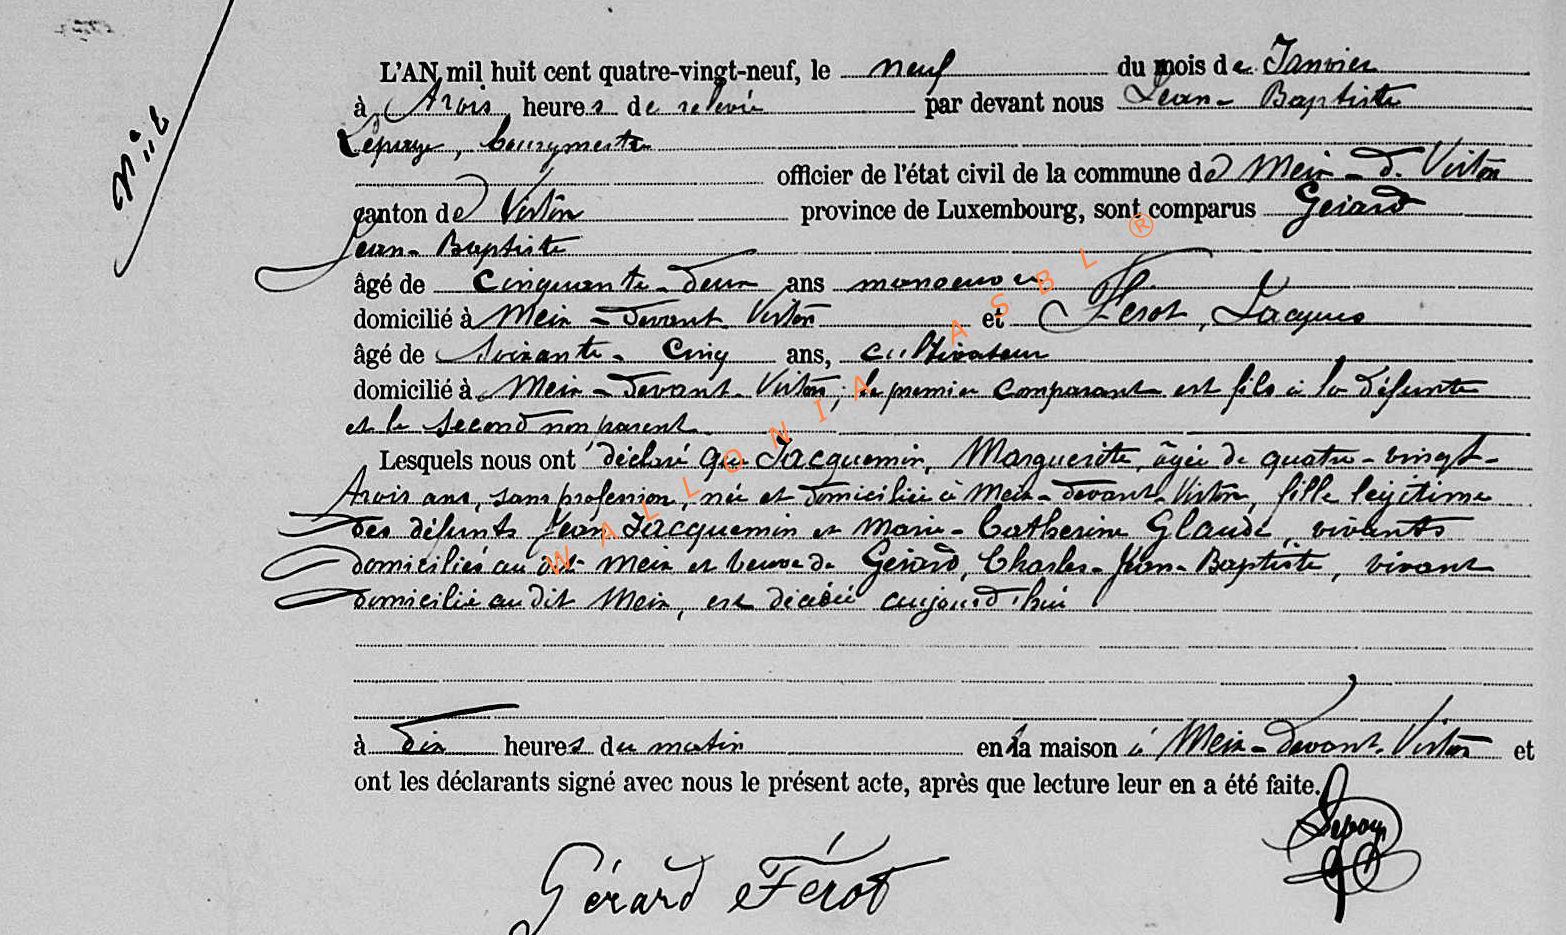 L'AN mil huit cent quatre-vingt-neuf, le neuf du mois de Janvier
à Trois heures de relevée par devant nous Jean-Baptiste
Lepage, bourgmestre
officier de l'état civil de la commune de Meix-d. Virton
canton de Virton province de Luxembourg, sont comparus Gérard
Jean-Baptiste
âgé de cinquante-deux ans manoeuvre
domicilié à Meix-devant Virton et Férot, Jacques
âgé de soixante-cinq ans, cultivateur
domicilié à Meix-devant-Virton; le premier comparant est fils à la défunte
et le second non parent
Lesquels nous ont déclaré que Jacquemin, Marguerite, âgée de quatre-vingt-
trois ans, sans profession, née et domiciliée à Meix-devant-Virton, fille légitime
des défunts Jean Jacquemin et Marie-Catherine Glaude, vivants
domiciliés au dit Meix et veuve de Gérard, Charles-Jean-Baptiste, vivant
domicilié au dit Meix, est décédée aujourd'hui
à dix heures du matin en la maison à Meix-devant-Virton et
ont les déclarants signé avec nous le présent acte, après que lecture leur en a été faite.
Gérard Férot
WALLONIA ASBL ®